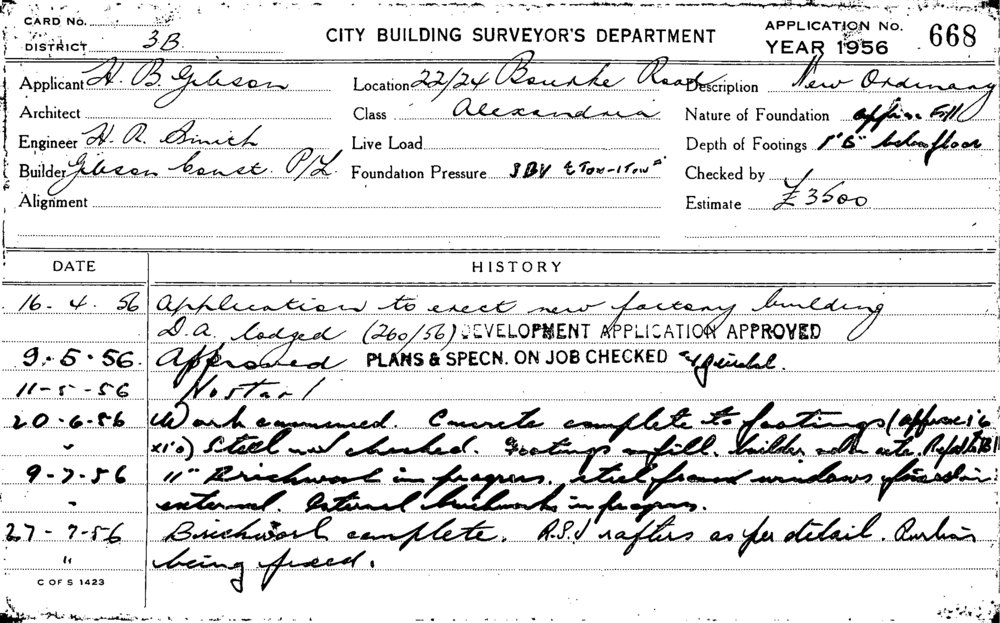 CARD No.
DISTRICT 3B
CITY BUILDING SURVEYOR'S DEPARTMENT
APPLICATION No. 668
YEAR 1956
Applicant H. B. Gibson
Location 22/24 Bourke Road
Description New Ordinary
Architect
Class Alexandria
Nature of Foundation fill
Engineer H. R. Smith
Live Load
Depth of Footings 1'6" below floor
Builder Gibson Const. P/L
Foundation Pressure
Checked by
Alignment
Estimate £3500
DATE HISTORY
16-4.56 Application to erect new factory building
D.A. lodged (260/56) DEVELOPMENT APPLICATION APPROVED
9.5.56. Approved PLANS & SPECN. ON JOB CHECKED
11-5-56 No start
20-6-56 Work commenced. Concrete complete to footings (approx 1'6
" x1'0) Steel not checked. Footings on fill. builder
9-7-56 " Brickwork in progress. steel framed windows
" external. Internal brickwork in progress.
27-7-56 Brickwork complete. R.S.J rafters as per detail. Purlins
" being fixed.
C OF S 1423